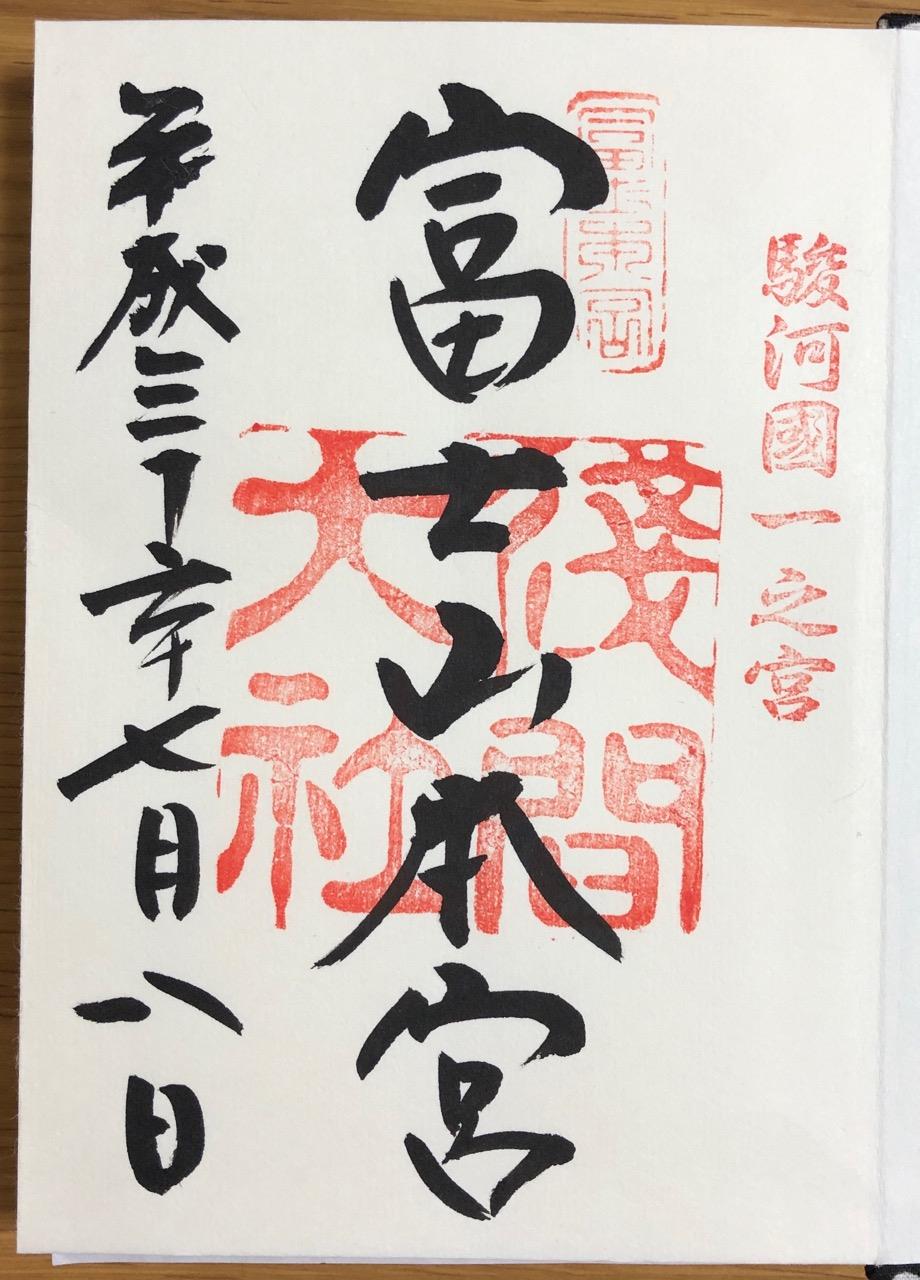 駿河國一之宮
富士本宮
富士山本宮
淺間
大社
平成三十年七月八日